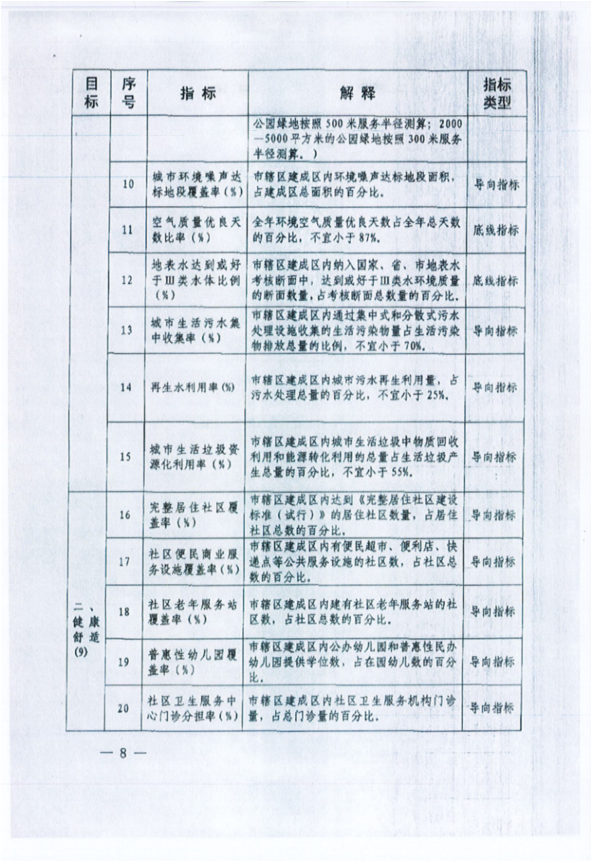 目标 序号 指标 解释 指标类型
公园绿地按照 500 米服务半径测算；2000
—5000 平方米的公园绿地按照 300 米服务
半径测算。）
10 城市环境噪声达标地段覆盖率（%）
市辖区建成区内环境噪声达标地段面积，
占建成区总面积的百分比。
导向指标
11 空气质量优良天数比率（%）
全年环境空气质量优良天数占全年总天数
的百分比，不宜小于 87%。
底线指标
12 地表水达到或好于Ⅲ类水体比例（%）
市辖区建成区内纳入国家、省、市地表水
考核断面中，达到或好于Ⅲ类水环境质量
的断面数量，占考核断面总数量的百分比。
底线指标
13 城市生活污水集中收集率（%）
市辖区建成区内通过集中式和分散式污水
处理设施收集的生活污染物量占生活污染
物排放总量的比例，不宜小于 70%。
导向指标
14 再生水利用率(%)
市辖区建成区内城市污水再生利用量，占
污水处理总量的百分比，不宜小于 25%。
导向指标
15 城市生活垃圾资源化利用率（%）
市辖区建成区内城市生活垃圾中物质回收
利用和能源转化利用的总量占生活垃圾产
生总量的百分比，不宜小于 55%。
导向指标
二、健康舒适(9)
16 完整居住社区覆盖率（%）
市辖区建成区内达到《完整居住社区建设
标准（试行）》的居住社区数量，占居住
社区总数的百分比。
导向指标
17 社区便民商业服务设施覆盖率(%)
市辖区建成区内有便民超市、便利店、快
递点等公共服务设施的社区数，占社区总
数的百分比。
导向指标
18 社区老年服务站覆盖率（%）
市辖区建成区内建有社区老年服务站的社
区数，占社区总数的百分比。
导向指标
19 普惠性幼儿园覆盖率（%）
市辖区建成区内公办幼儿园和普惠性民办
幼儿园提供学位数，占在园幼儿数的百分
比。
导向指标
20 社区卫生服务中心门诊分担率(%)
市辖区建成区内社区卫生服务机构门诊
量，占总门诊量的百分比。
导向指标
— 8 —